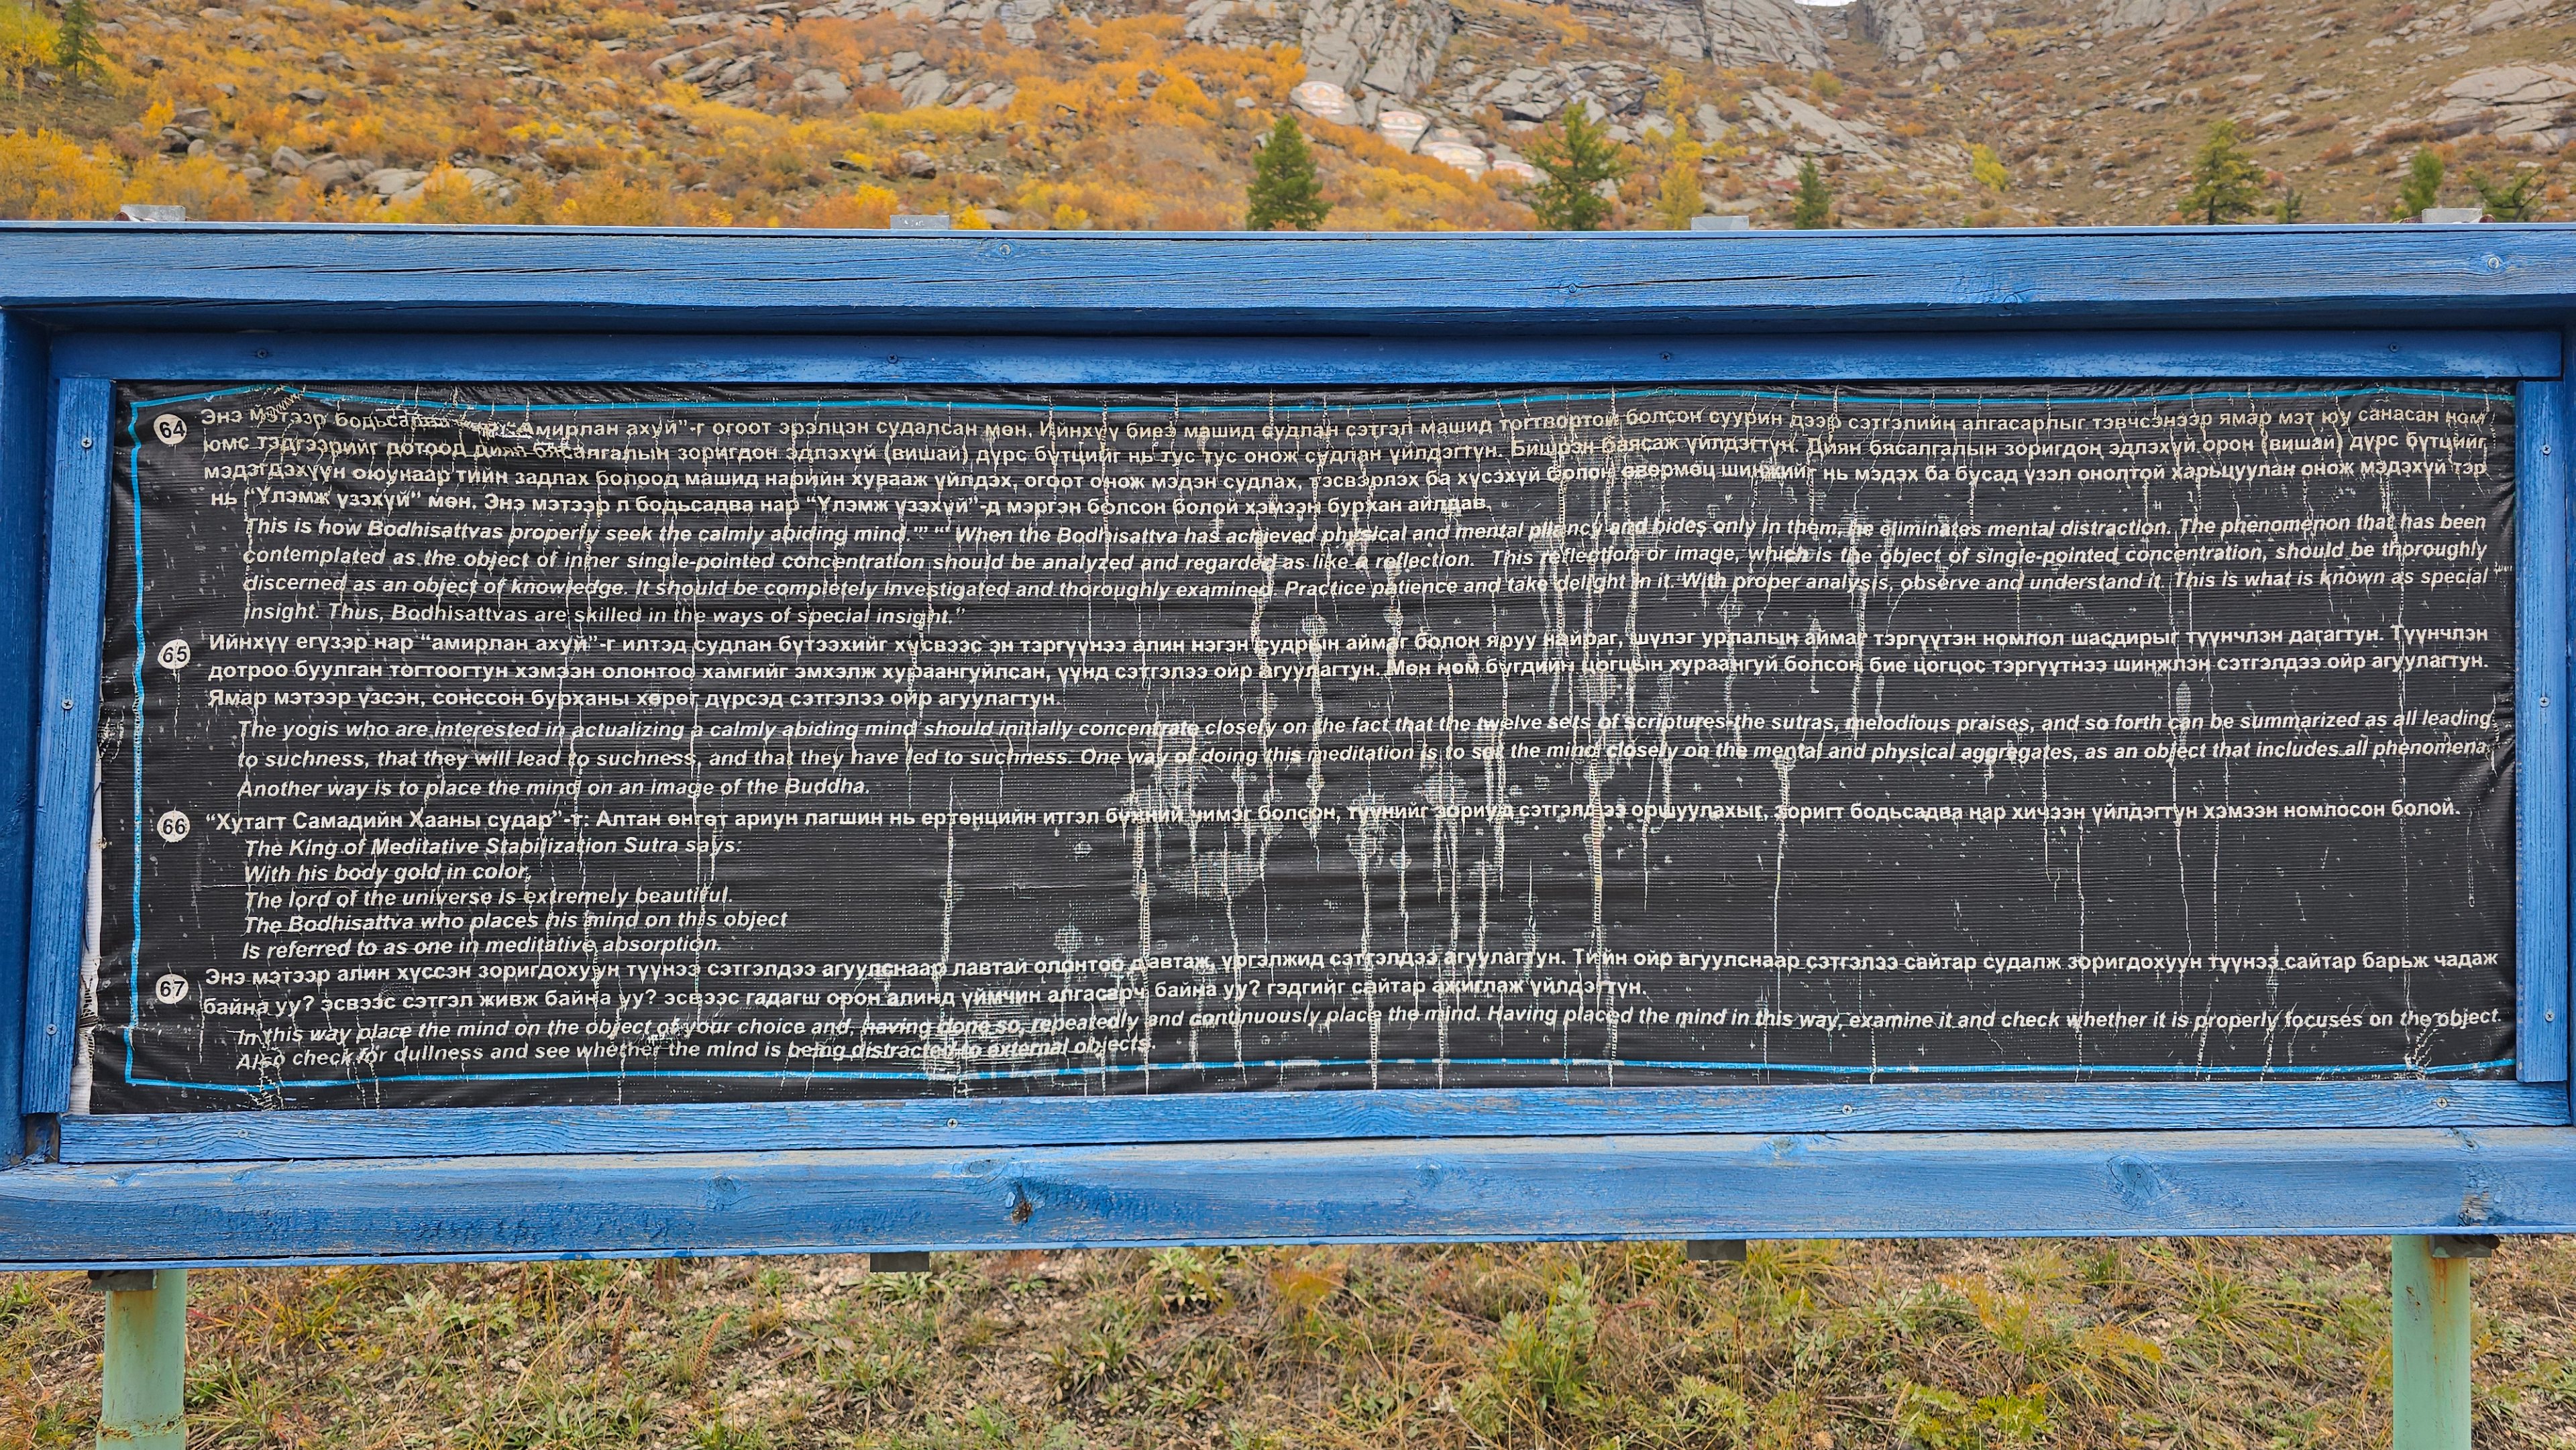 64 Энэ мэтээр бодьсадва "Амирлан ахуй"-г огоот эрэлцэн судалсан мөн, Ийнхүү биеэ машид судлан сэтгэл машид тогтвортой болсон суурин дээр сэтгэлийн алгасарлыг тэвчсэнээр ямар мэт юу санасан ном
юмс тэдгээрийг дотоод диян бясалгалын зоригдон эдлэхүй (вишай) дүрс бүтцийг нь тус тус онож судлан үйлдэгтүн. Бишрэн баясаж үйлдэгтүн. Диян бясалгалын зоригдон эдлэхүй орон (вишай) дүрс бүтцийг
мэдэгдэхүүн оюунаар тийн задлах болоод машид нарийн хувааж үйлдэх, огоот онож мэдэн судлах, тэсвэрлэх ба хүсэхүй болон өвөрмөц шинжийг нь мэдэх ба бусад үзэл онолтой харьцуулан онож мэдэхүй тэр
нь "Үлэмж үзэхүй" мөн, Энэ мэтээр л бодьсадва нар "Үлэмж үзэхүй"-д мэргэн болсон болой хэмээн бурхан айлдав.
This is how Bodhisattvas properly seek the calmly abiding mind.'" "' When the Bodhisattva has achieved physical and mental pliancy and bides only in them, he eliminates mental distraction. The phenomenon that has been
contemplated as the object of inner single-pointed concentration should be analyzed and regarded as like a reflection. This reflection or image, which is the object of single-pointed concentration, should be thoroughly
discerned as an object of knowledge. It should be completely investigated and thoroughly examined. Practice patience and take delight in it. With proper analysis, observe and understand it. This is what is known as special
insight. Thus, Bodhisattvas are skilled in the ways of special insight."
65 Ийнхүү егүзэр нар "амирлан ахуй"-г илтэд судлан бүтээхийг хүсвээс эн тэргүүнээ алин нэгэн судрын аймаг болон яруу найраг, шүлэг урлалын аймаг тэргүүтэн номлол шасдирыг түүнчлэн дагагтун. Түүнчлэн
дотроо буулган тогтоогтун хэмээн олонтоо хамгийг эмхэлж хураангуйлсан, үүнд сэтгэлээ ойр агуулагтун. Мөн ном бүгдийн цогцын хураангуй болсон бие цогцос тэргүүтнээ шинжлэн сэтгэлдээ ойр агуулагтун.
Ямар мэтээр үзсэн, сонссон бурханы хөрөг дүрсэд сэтгэлээ ойр агуулагтун.
The yogis who are interested in actualizing a calmly abiding mind should initially concentrate closely on the fact that the twelve sets of scriptures-the sutras, melodious praises, and so forth can be summarized as all leading
to suchness, that they will lead to suchness, and that they have led to suchness. One way of doing this meditation is to set the mind closely on the mental and physical aggregates, as an object that includes all phenomena.
Another way is to place the mind on an image of the Buddha.
66 "Хутагт Самадийн Хааны судар"-т: Алтан өнгөт ариун лагшин нь ертөнцийн итгэл бүхний чимэг болсон, түүнийг зориуд сэтгэлдээ оршуулахыг, зоригт бодьсадва нар хичээн үйлдэгтүн хэмээн номлосон болой.
The King of Meditative Stabilization Sutra says:
With his body gold in color,
The lord of the universe is extremely beautiful.
The Bodhisattva who places his mind on this object
Is referred to as one in meditative absorption.
67 Энэ мэтээр алин хүссэн зоригдохуун түүнээ сэтгэлдээ агуулснаар лавтай олонтоо давтаж, үргэлжид сэтгэлдээ агуулагтун. Тийн ойр агуулснаар сэтгэлээ сайтар судалж зоригдохуун түүнээ сайтар барьж чадаж
байна уу? эсвээс сэтгэл живж байна уу? эсвээс гадагш орон алинд үймчин алгасарч байна уу? гэдгийг сайтар ажиглаж үйлдэгтүн.
In this way place the mind on the object of your choice and, having done so, repeatedly and continuously place the mind. Having placed the mind in this way, examine it and check whether it is properly focuses on the object.
Also check for dullness and see whether the mind is being distracted to external objects.